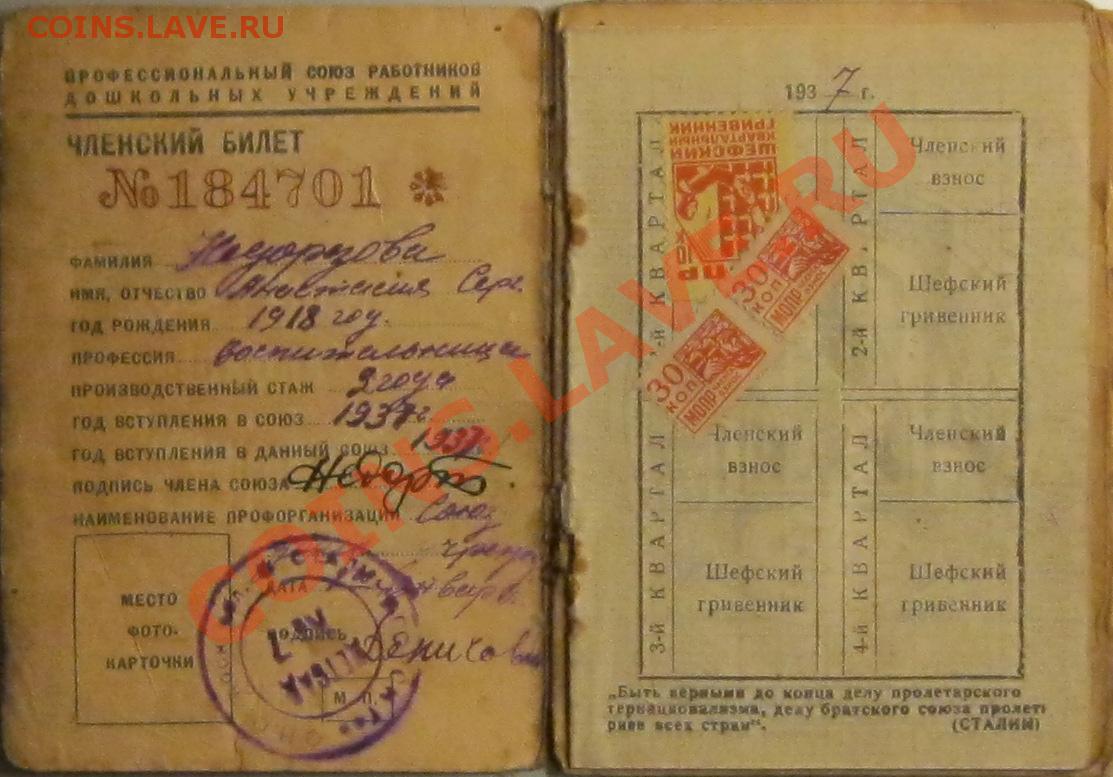 COINS.LAVE.RU
ПРОФЕССИОНАЛЬНЫЙ СОЮЗ РАБОТНИКОВ
ДОШКОЛЬНЫХ УЧРЕЖДЕНИЙ
ЧЛЕНСКИЙ БИЛЕТ
№184701
ФАМИЛИЯ
ИМЯ, ОТЧЕСТВО Анастасия Серг
ГОД РОЖДЕНИЯ 1918 год.
ПРОФЕССИЯ воспитательница
ПРОИЗВОДСТВЕННЫЙ СТАЖ 2 года
ГОД ВСТУПЛЕНИЯ В СОЮЗ 1937 г
ГОД ВСТУПЛЕНИЯ В ДАННЫЙ СОЮЗ 1937г
ПОДПИСЬ ЧЛЕНА СОЮЗА
НАИМЕНОВАНИЕ ПРОФОРГАНИЗАЦИИ Союз
МЕСТО
ФОТО-
КАРТОЧКИ
ДАТА
ПОДПИСЬ
М. П.
1937 г.
1-й КВАРТАЛ
ШЕФСКИЙ
КВАРТАЛЬНЫЙ
ГРИВЕННИК
30
КОП
МОПР
30
КОП
МОПР
2-й КВАРТАЛ
Членский
взнос
Шефский
гривенник
3-й КВАРТАЛ
Членский
взнос
Шефский
гривенник
4-й КВАРТАЛ
Членский
взнос
Шефский
гривенник
„Быть верными до конца делу пролетарского
тернационализма, делу братского союза пролет
риев всех стран“.
(СТАЛИН)
COINS.LAVE.RU